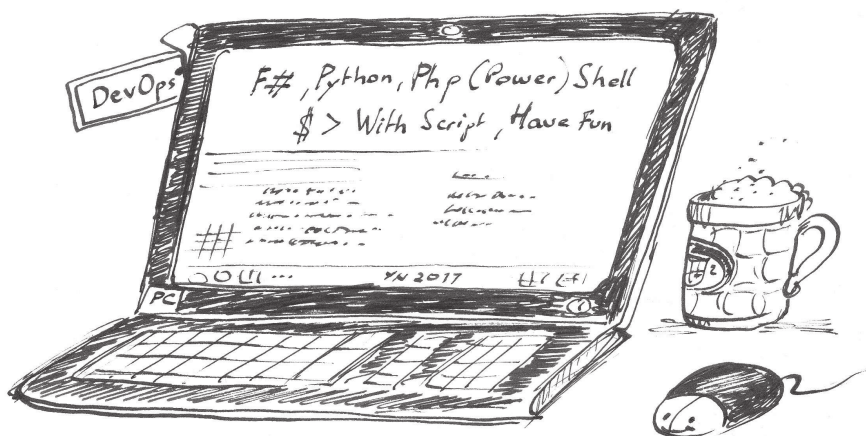 DevOps
F#, Python, Php (Power) Shell
$ > With Script, Have Fun
YN 2017
PC